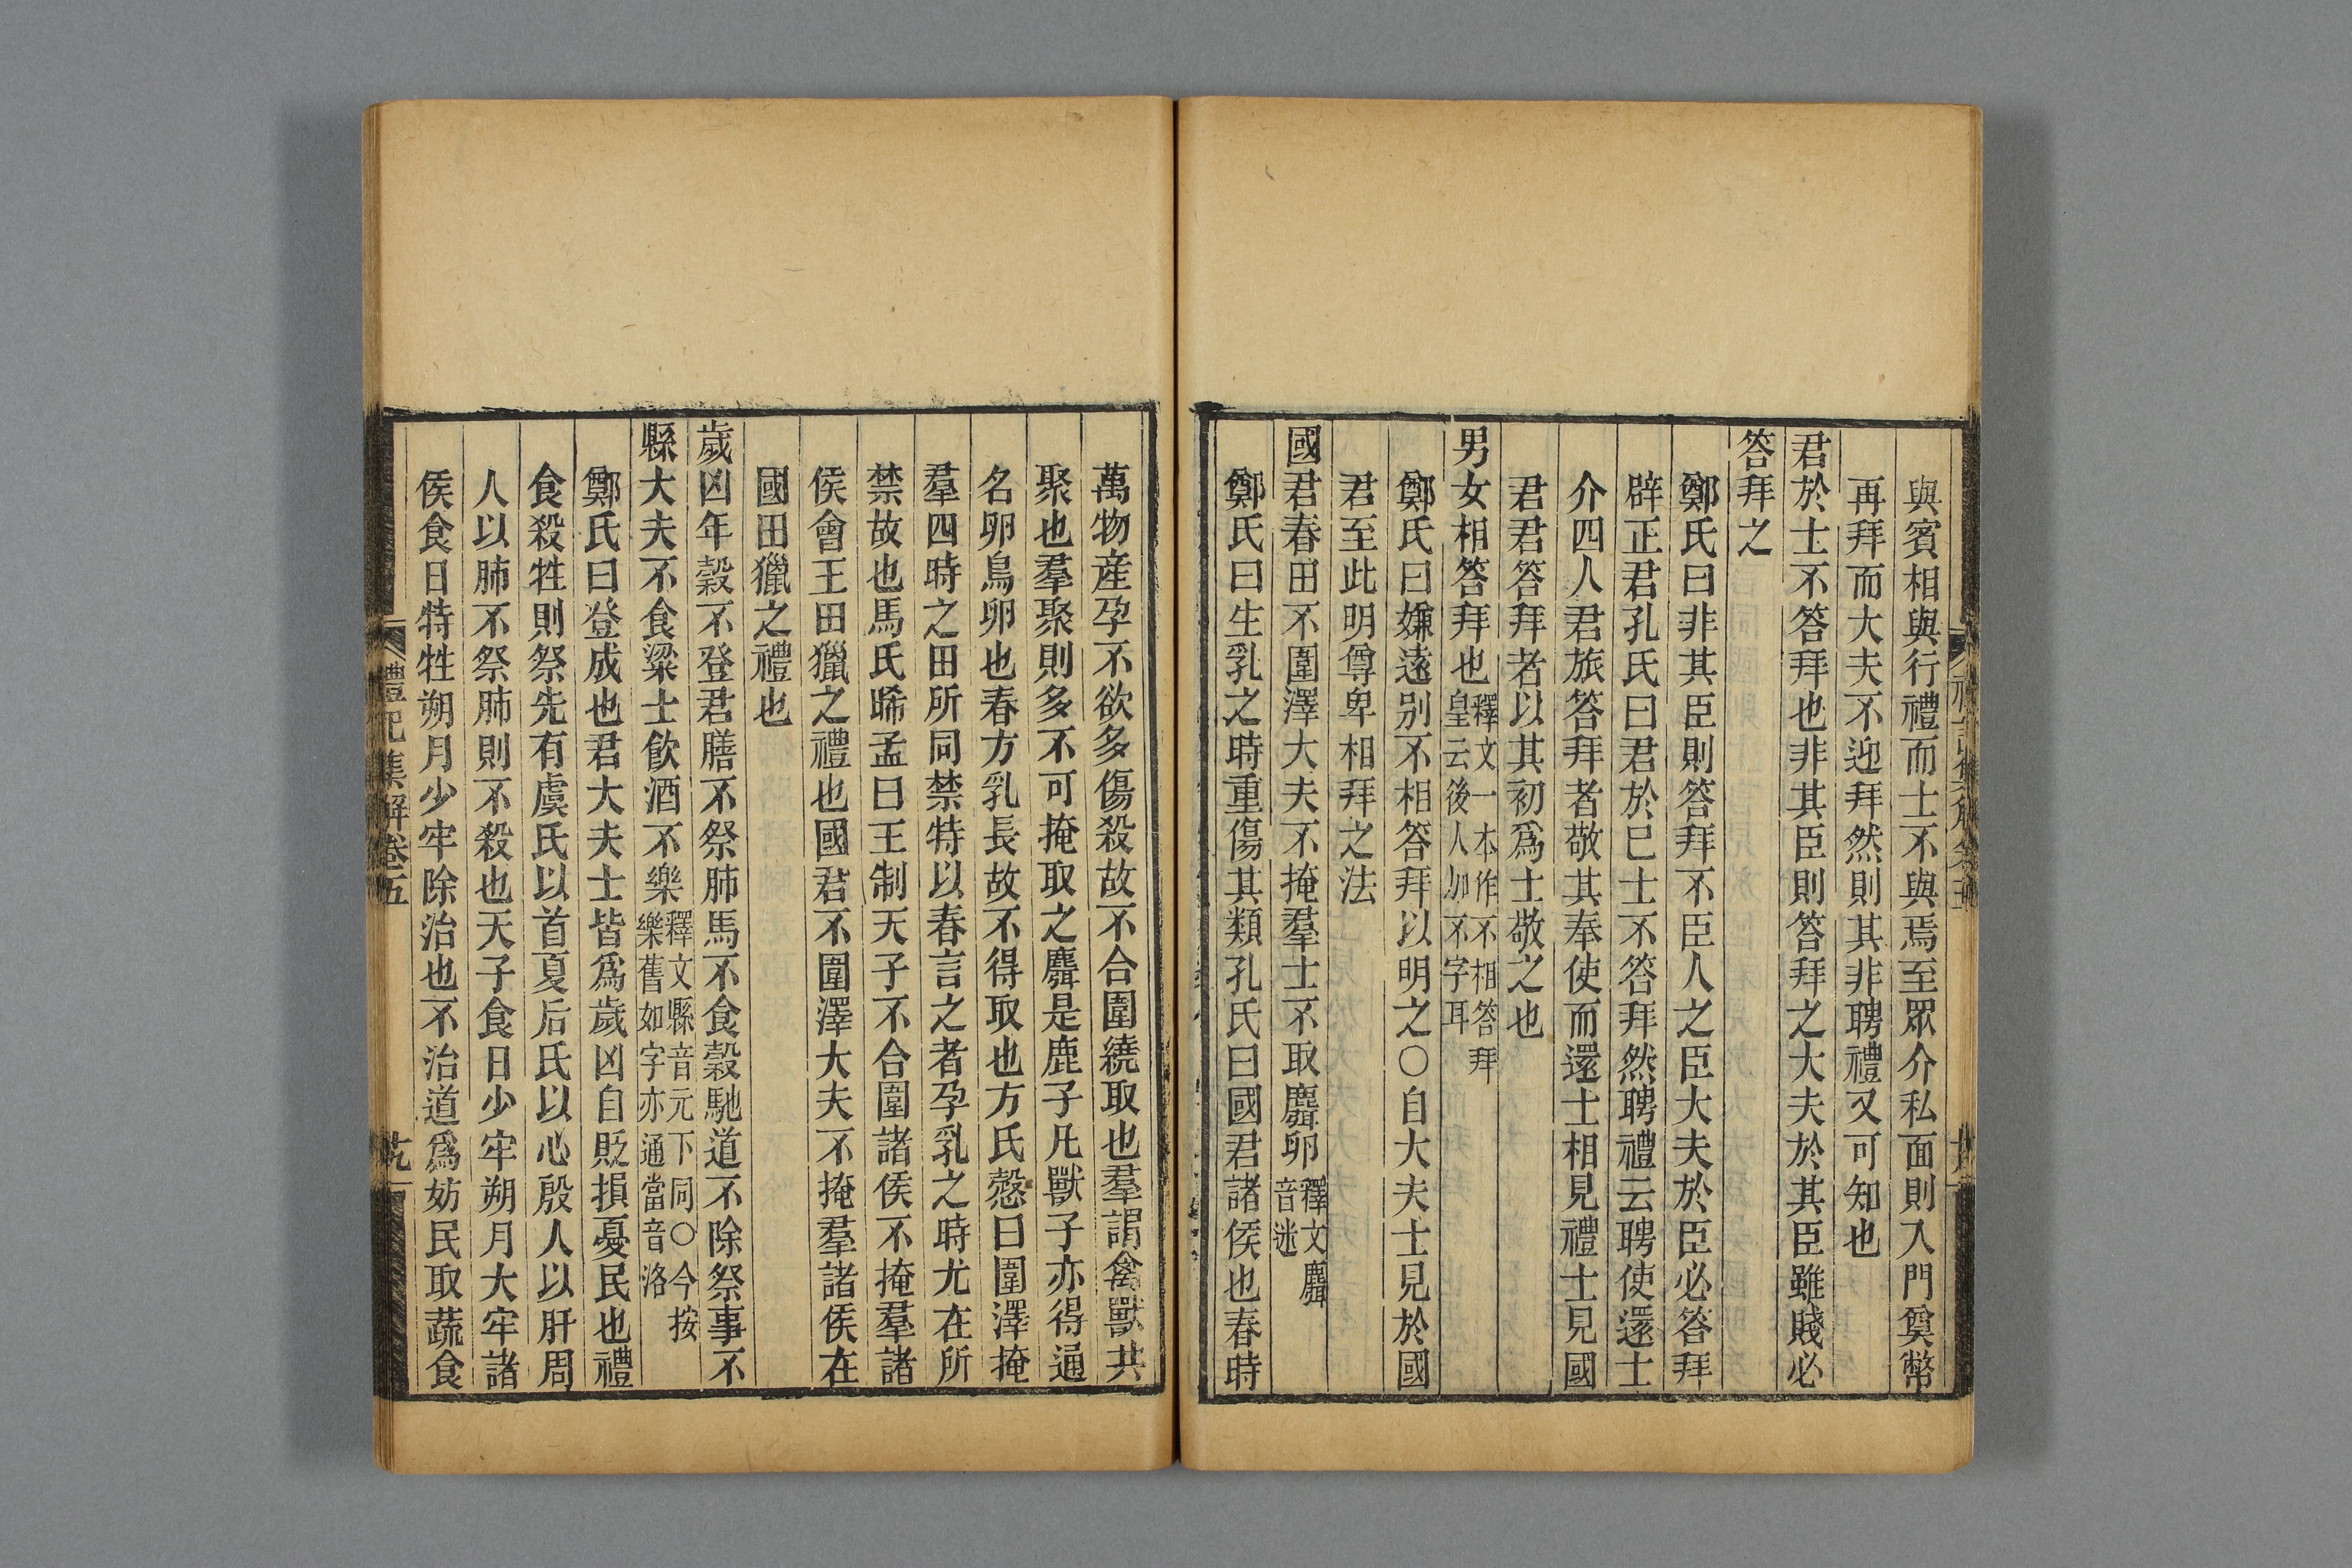 與賓相與行禮而士不與焉至眾介私面則入門奠幣
再拜而大夫不迎拜然則其非聘禮又可知也
君於士不答拜也非其臣則答拜之大夫於其臣雖賤必
答拜之
鄭氏曰非其臣則答拜不臣人之臣大夫於臣必答拜
辟正君孔氏曰君於巳士不答拜然聘禮云聘使還士
介四人君旅答拜者敬其奉使而還士相見禮士見國
君君答拜者以其初爲士敬之也
男女相答拜也釋文一本作不相答拜皇云後人加不字耳
鄭氏曰嫌遠别不相答拜以明之○自大夫士見於國
君至此明尊卑相拜之法
國君春田不圍澤大夫不掩羣士不取麛卵釋文麛音迷
鄭氏曰生乳之時重傷其類孔氏曰國君諸侯也春時
萬物産孕不欲多傷殺故不合圍繞取也羣謂禽獸共
聚也羣聚則多不可掩取之麛是鹿子凡獸子亦得通
名卵鳥卵也春方乳長故不得取也方氏慤曰圍澤掩
羣四時之田所同禁特以春言之者孕乳之時尤在所
禁故也馬氏晞孟曰王制天子不合圍諸侯不掩羣諸
侯會王田獵之禮也國君不圍澤大夫不掩羣諸侯在
國田獵之禮也
歲凶年穀不登君膳不祭肺馬不食穀馳道不除祭事不
縣大夫不食粱士飮酒不樂釋文縣音元下同○今按樂舊如字亦通當音洛
鄭氏曰登成也君大夫士皆爲歲凶自貶損憂民也禮
食殺牲則祭先有虞氏以首夏后氏以心殷人以肝周
人以肺不祭肺則不殺也天子食日少牢朔月大牢諸
侯食日特牲朔月少牢除治也不治道爲妨民取蔬食
禮記集解卷五